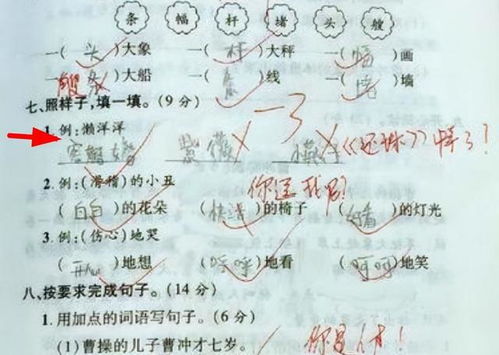 条 幅 杆 堵 头 艘
一(头)大象 一(杆)大秤 一(幅)画
一(艘)大船 一(条)线 一(堵)墙
七、照样子,填一填。(9 分)
一3
1. 例:懒洋洋
紫薇 《还珠》 了!
2. 例:(滑稽)的小丑 你逗我呢?
(白白)的花朵 ()的椅子 (好看)的灯光
3. 例:(伤心)地哭
(开心)地想 ()地看 (呵呵)地笑
八、按要求完成句子。(14 分)
1. 用加点的词语写句子。(6 分)
(1)曹操的儿子曹冲才七岁。 你是人才!